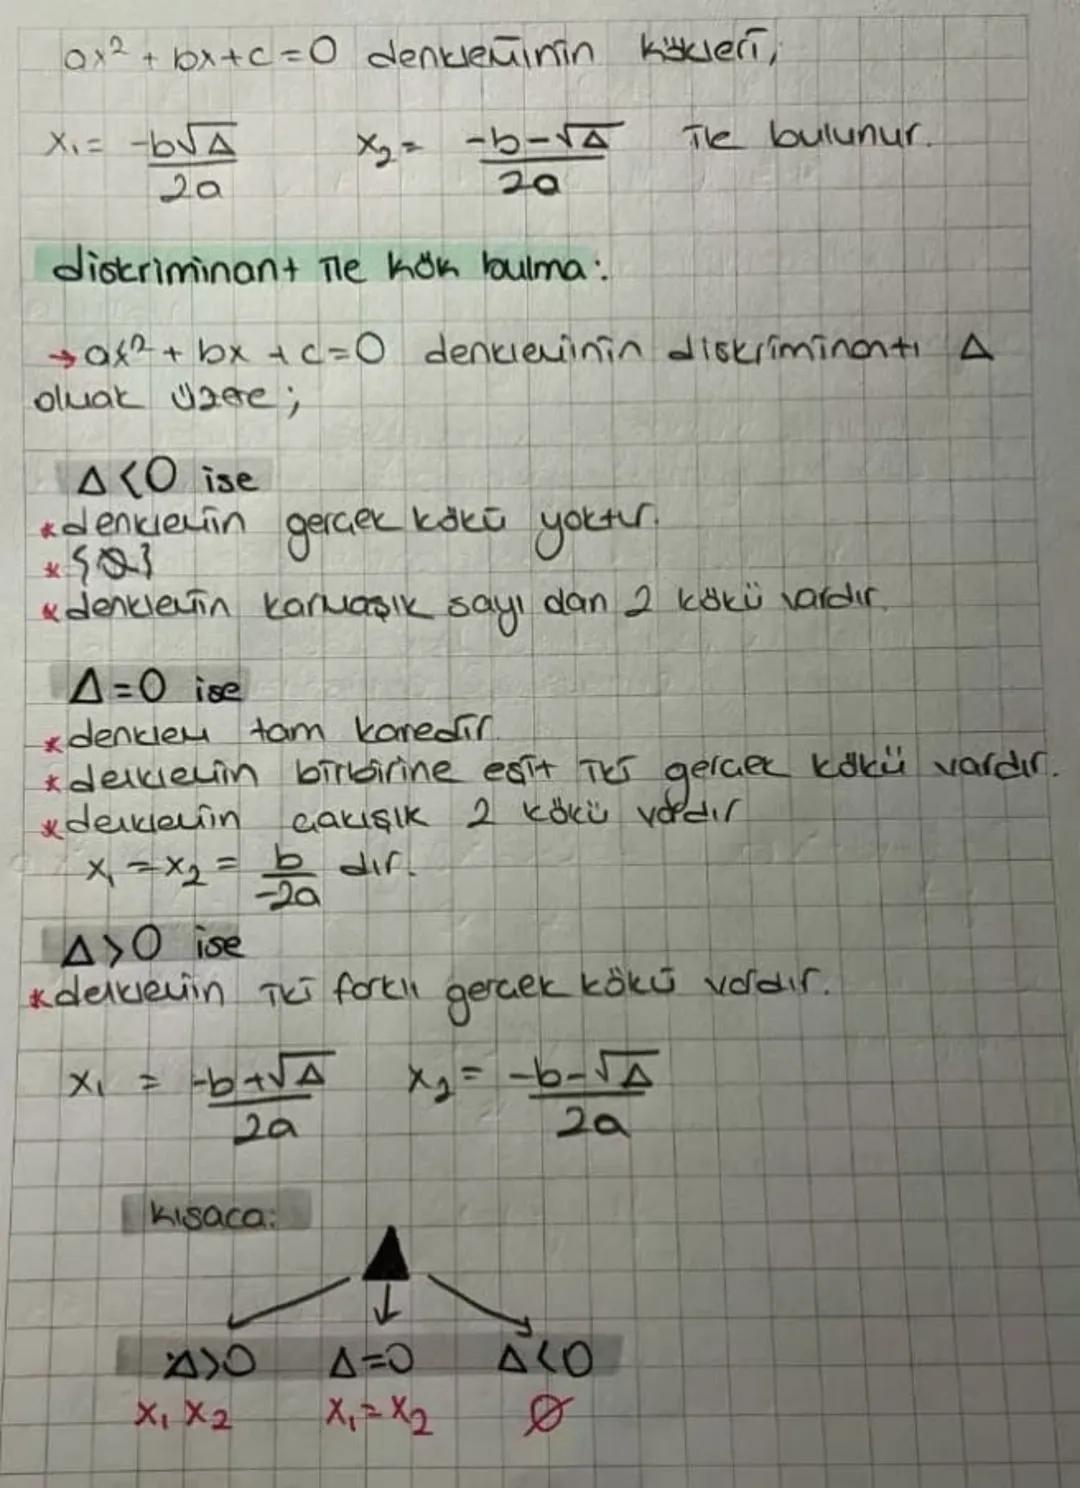 ax² + bx + c = 0 denkleminin kökleri;
x₁ = -b√Δ / 2a x₂ = -b-√Δ / 2a ile bulunur.
diskriminant ile kök bulma:
→ ax² + bx + c = 0 denkleminin diskriminantı Δ
olmak üzere;
Δ<0 ise
* denklemin gerçek kökü yoktur.
* {∅}
* denklemin karmaşık sayı dan 2 kökü vardır.
Δ=0 ise
* denklem tam karedir.
* denklemin birbirine eşit iki gerçek kökü vardır.
* denklemin çakışık 2 kökü vardır
x₁ = x₂ = b / -2a dır.
Δ>0 ise
* denklemin iki farklı gerçek kökü vardır.
x₁ = -b+√Δ / 2a x₂ = -b-√Δ / 2a
kısaca:
Δ>0 Δ=0 Δ<0
x₁ x₂ x₁ = x₂ ∅